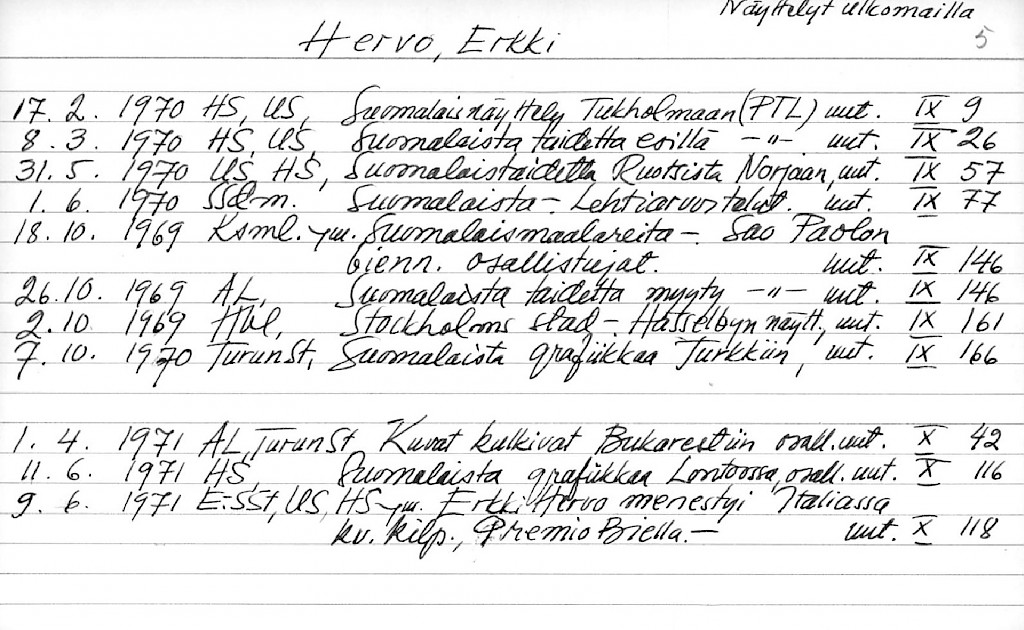 Näyttelyt ulkomailla
5
Hervo, Erkki
17. 2. 1970 HS, US, Suomalaisnäyttely Tukholmaan (PTL) uut. IX 9
8. 3. 1970 HS, US, Suomalaista taidetta esillä -"- uut. IX 26
31. 5. 1970 US, HS, Suomalaistaidetta Ruotsista Norjaan, uut. IX 57
1. 6. 1970 SSd.m. Suomalaista - Lehtiarvostelut. uut. IX 77
18. 10. 1969 Ksml. ym. Suomalaismaalareita - Sao Paolon
bienn. osallistujat. uut. IX 146
26. 10. 1969 AL, Suomalaista taidetta myyty -"- uut. IX 146
2. 10 1969 Hbl, Stockholms stad - Hässelbyn näytt., uut. IX 161
7. 10. 1970 TurunSt, Suomalaista grafiikkaa Turkkiin, uut. IX 166
1. 4. 1971 AL, TurunSt Kuvat kulkivat Bukarestiin osall. uut. X 42
11. 6. 1971 HS, Suomalaista grafiikkaa Lontoossa, osall. uut. X 116
9. 6. 1971 E:SSt, US, HS ym. Erkki Hervo menestyi Italiassa
kv. kilp., Premio Biella. - uut. X 118